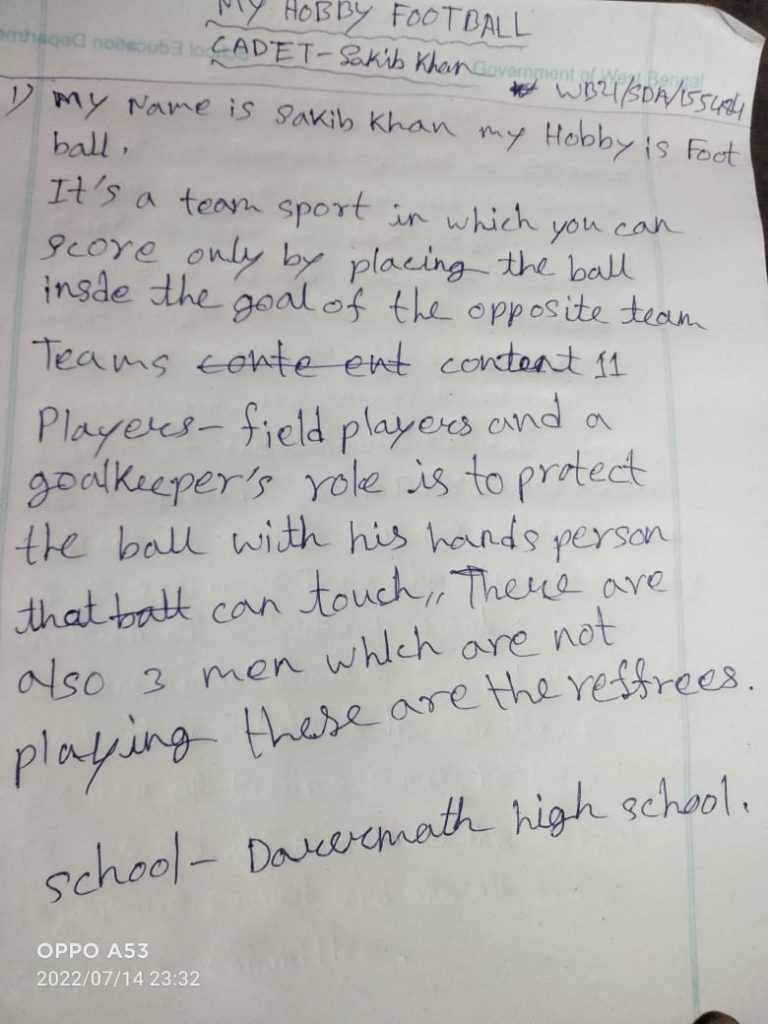 MY HOBBY FOOTBALL
CADET- Sakib Khan
Government of West Bengal
School Education Department
1) My Name is Sakib Khan my Hobby is Foot
ball.
It's a team sport in which you can
score only by placing the ball
insde the goal of the opposite team
Teams conte ent content 11
Players- field players and a
goalkeeper's role is to protect
the ball with his hands person
that ball can touch,, There are
also 3 men which are not
playing these are the reffrees.
school- Darermath high school.
OPPO A53
2022/07/14 23:32